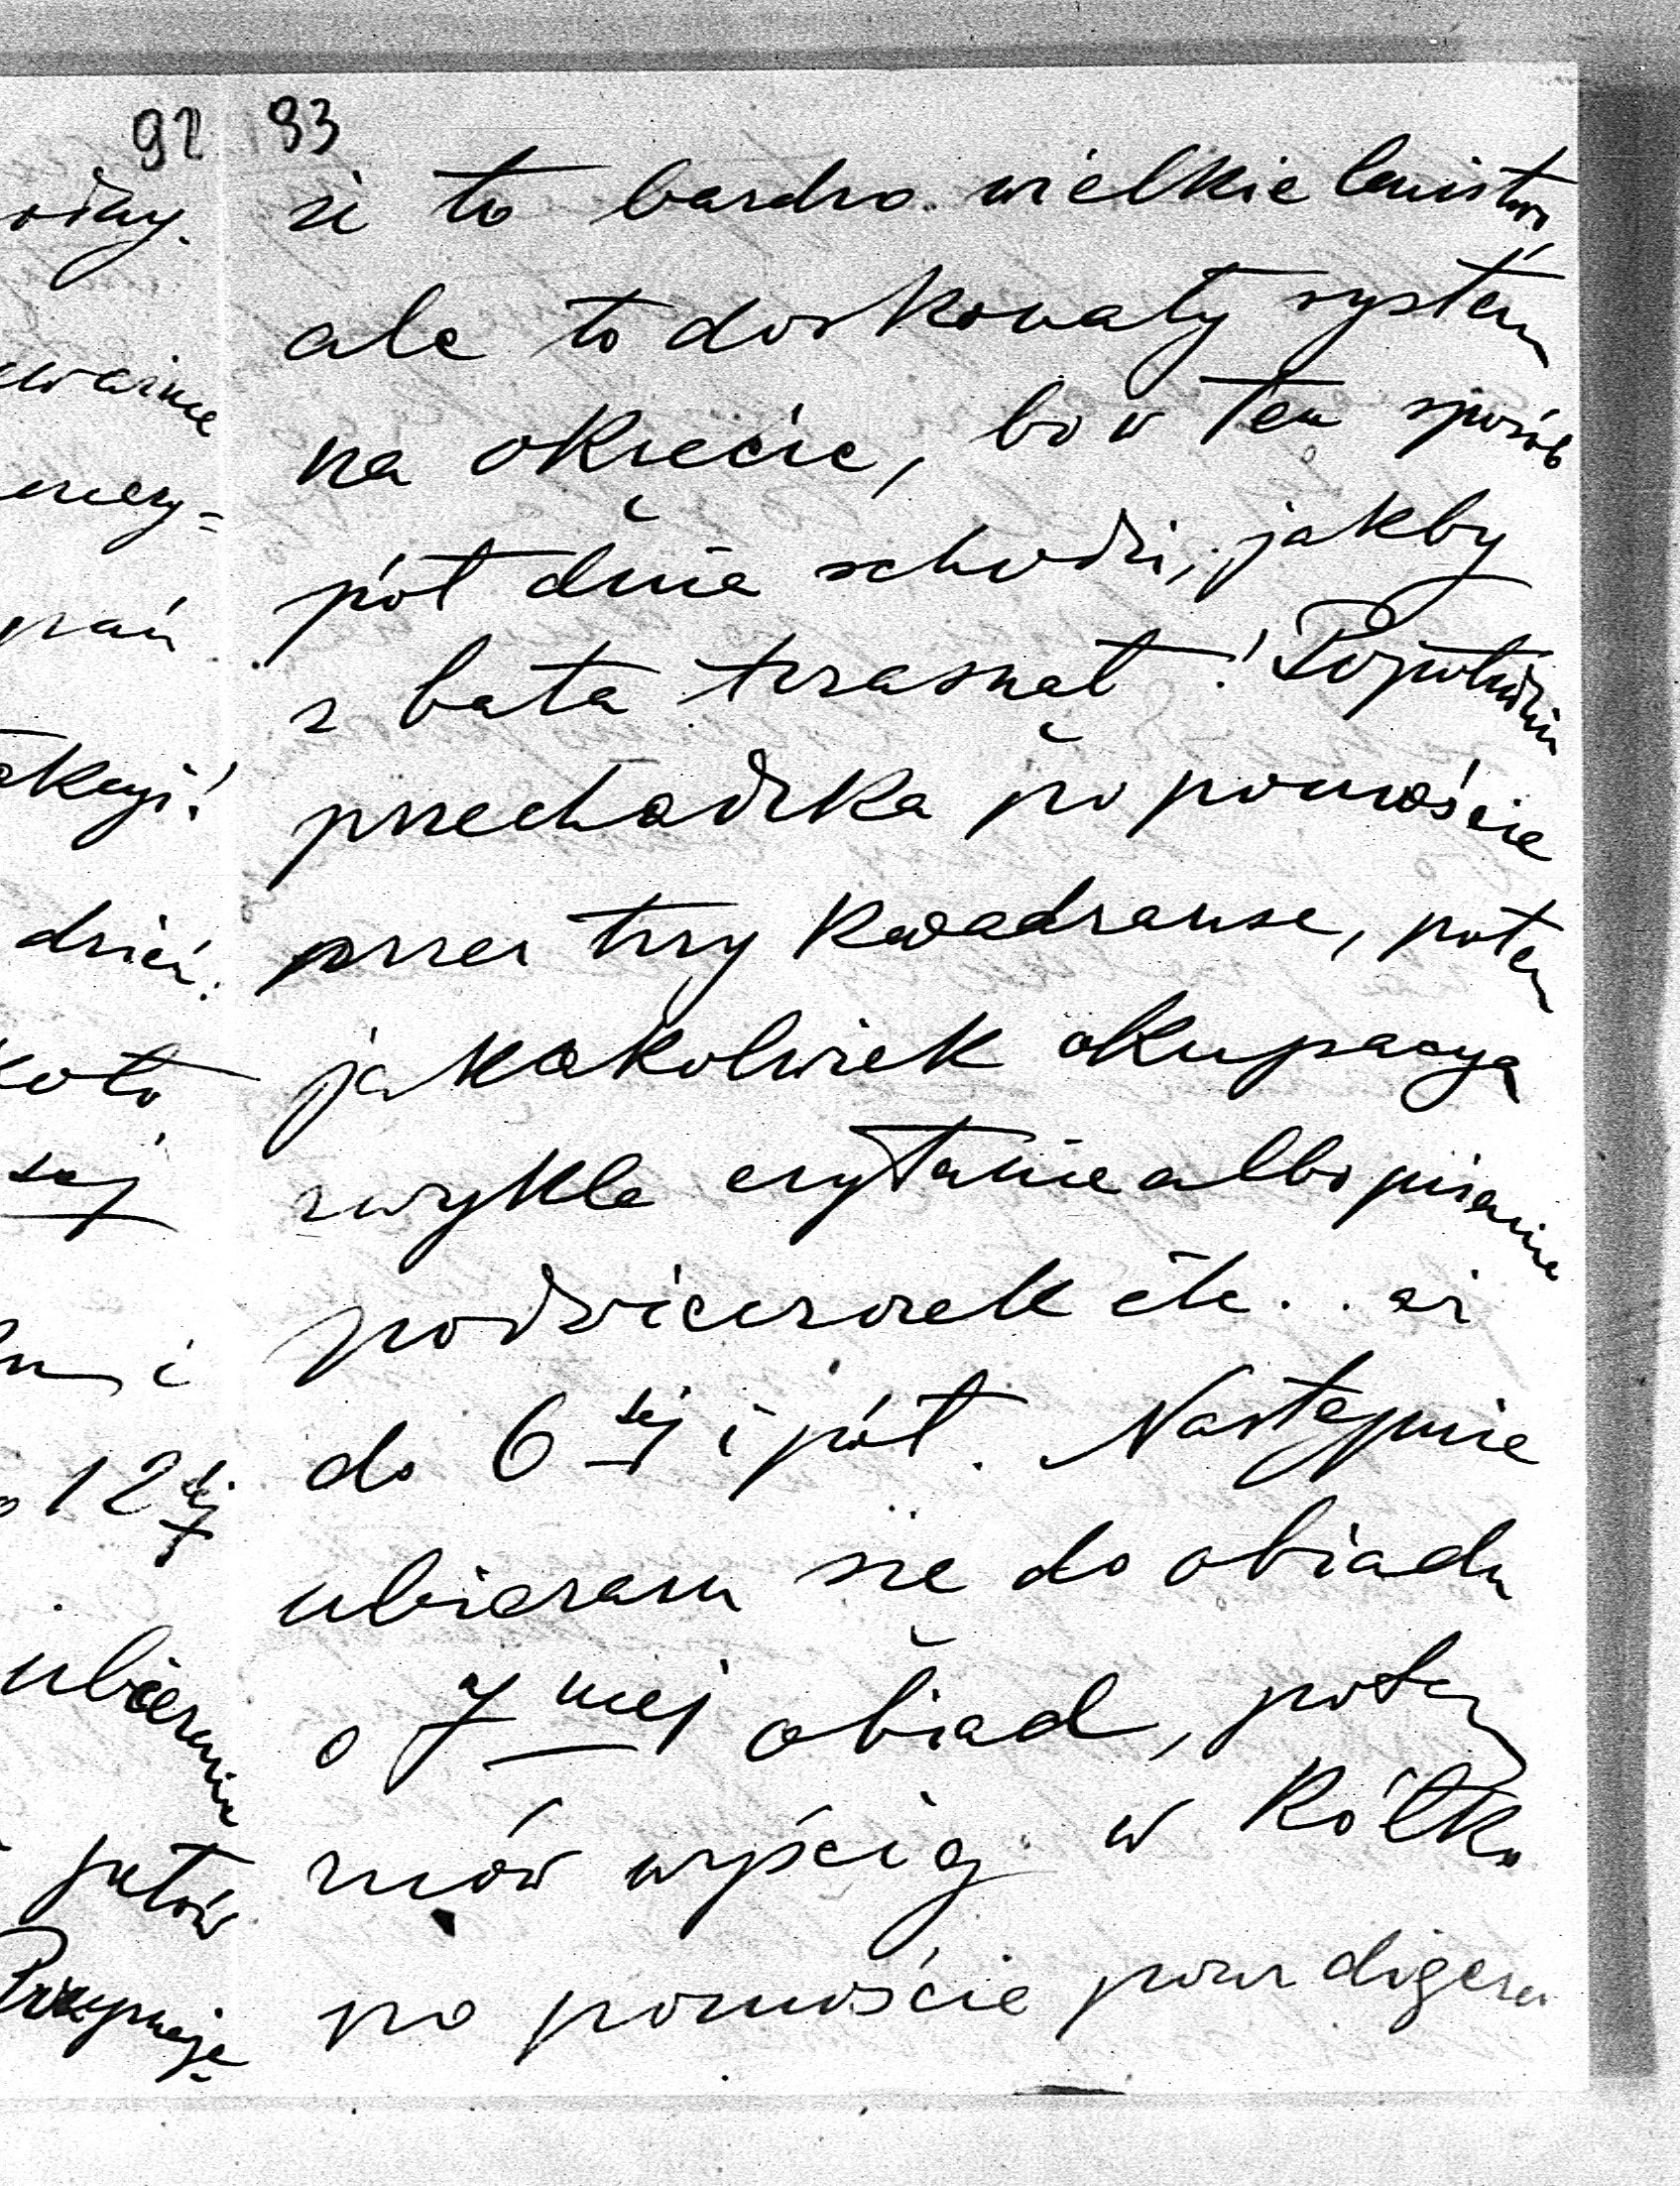 92 93
że to bardzo wielkie lenistwo,
ale to doskonały system
na okręcie, bo w ten sposób
pół dnia schodzi, jakby
z bata trzasnął! Popołudniu
przechadzka po pomoście
przez trzy kwadranse, potem
jakakolwiek okupacya
zwykle czytanie albo pisanie
podwieczorek etc.. aż
do 6tej i pół. Następnie
ubieram się do obiadu
o 7mej obiad, potem
znów wyścig w kółko
po pomoście pour digérer
dzień.
koło
tej
i
12tej
ubieranie
Przyjmuję